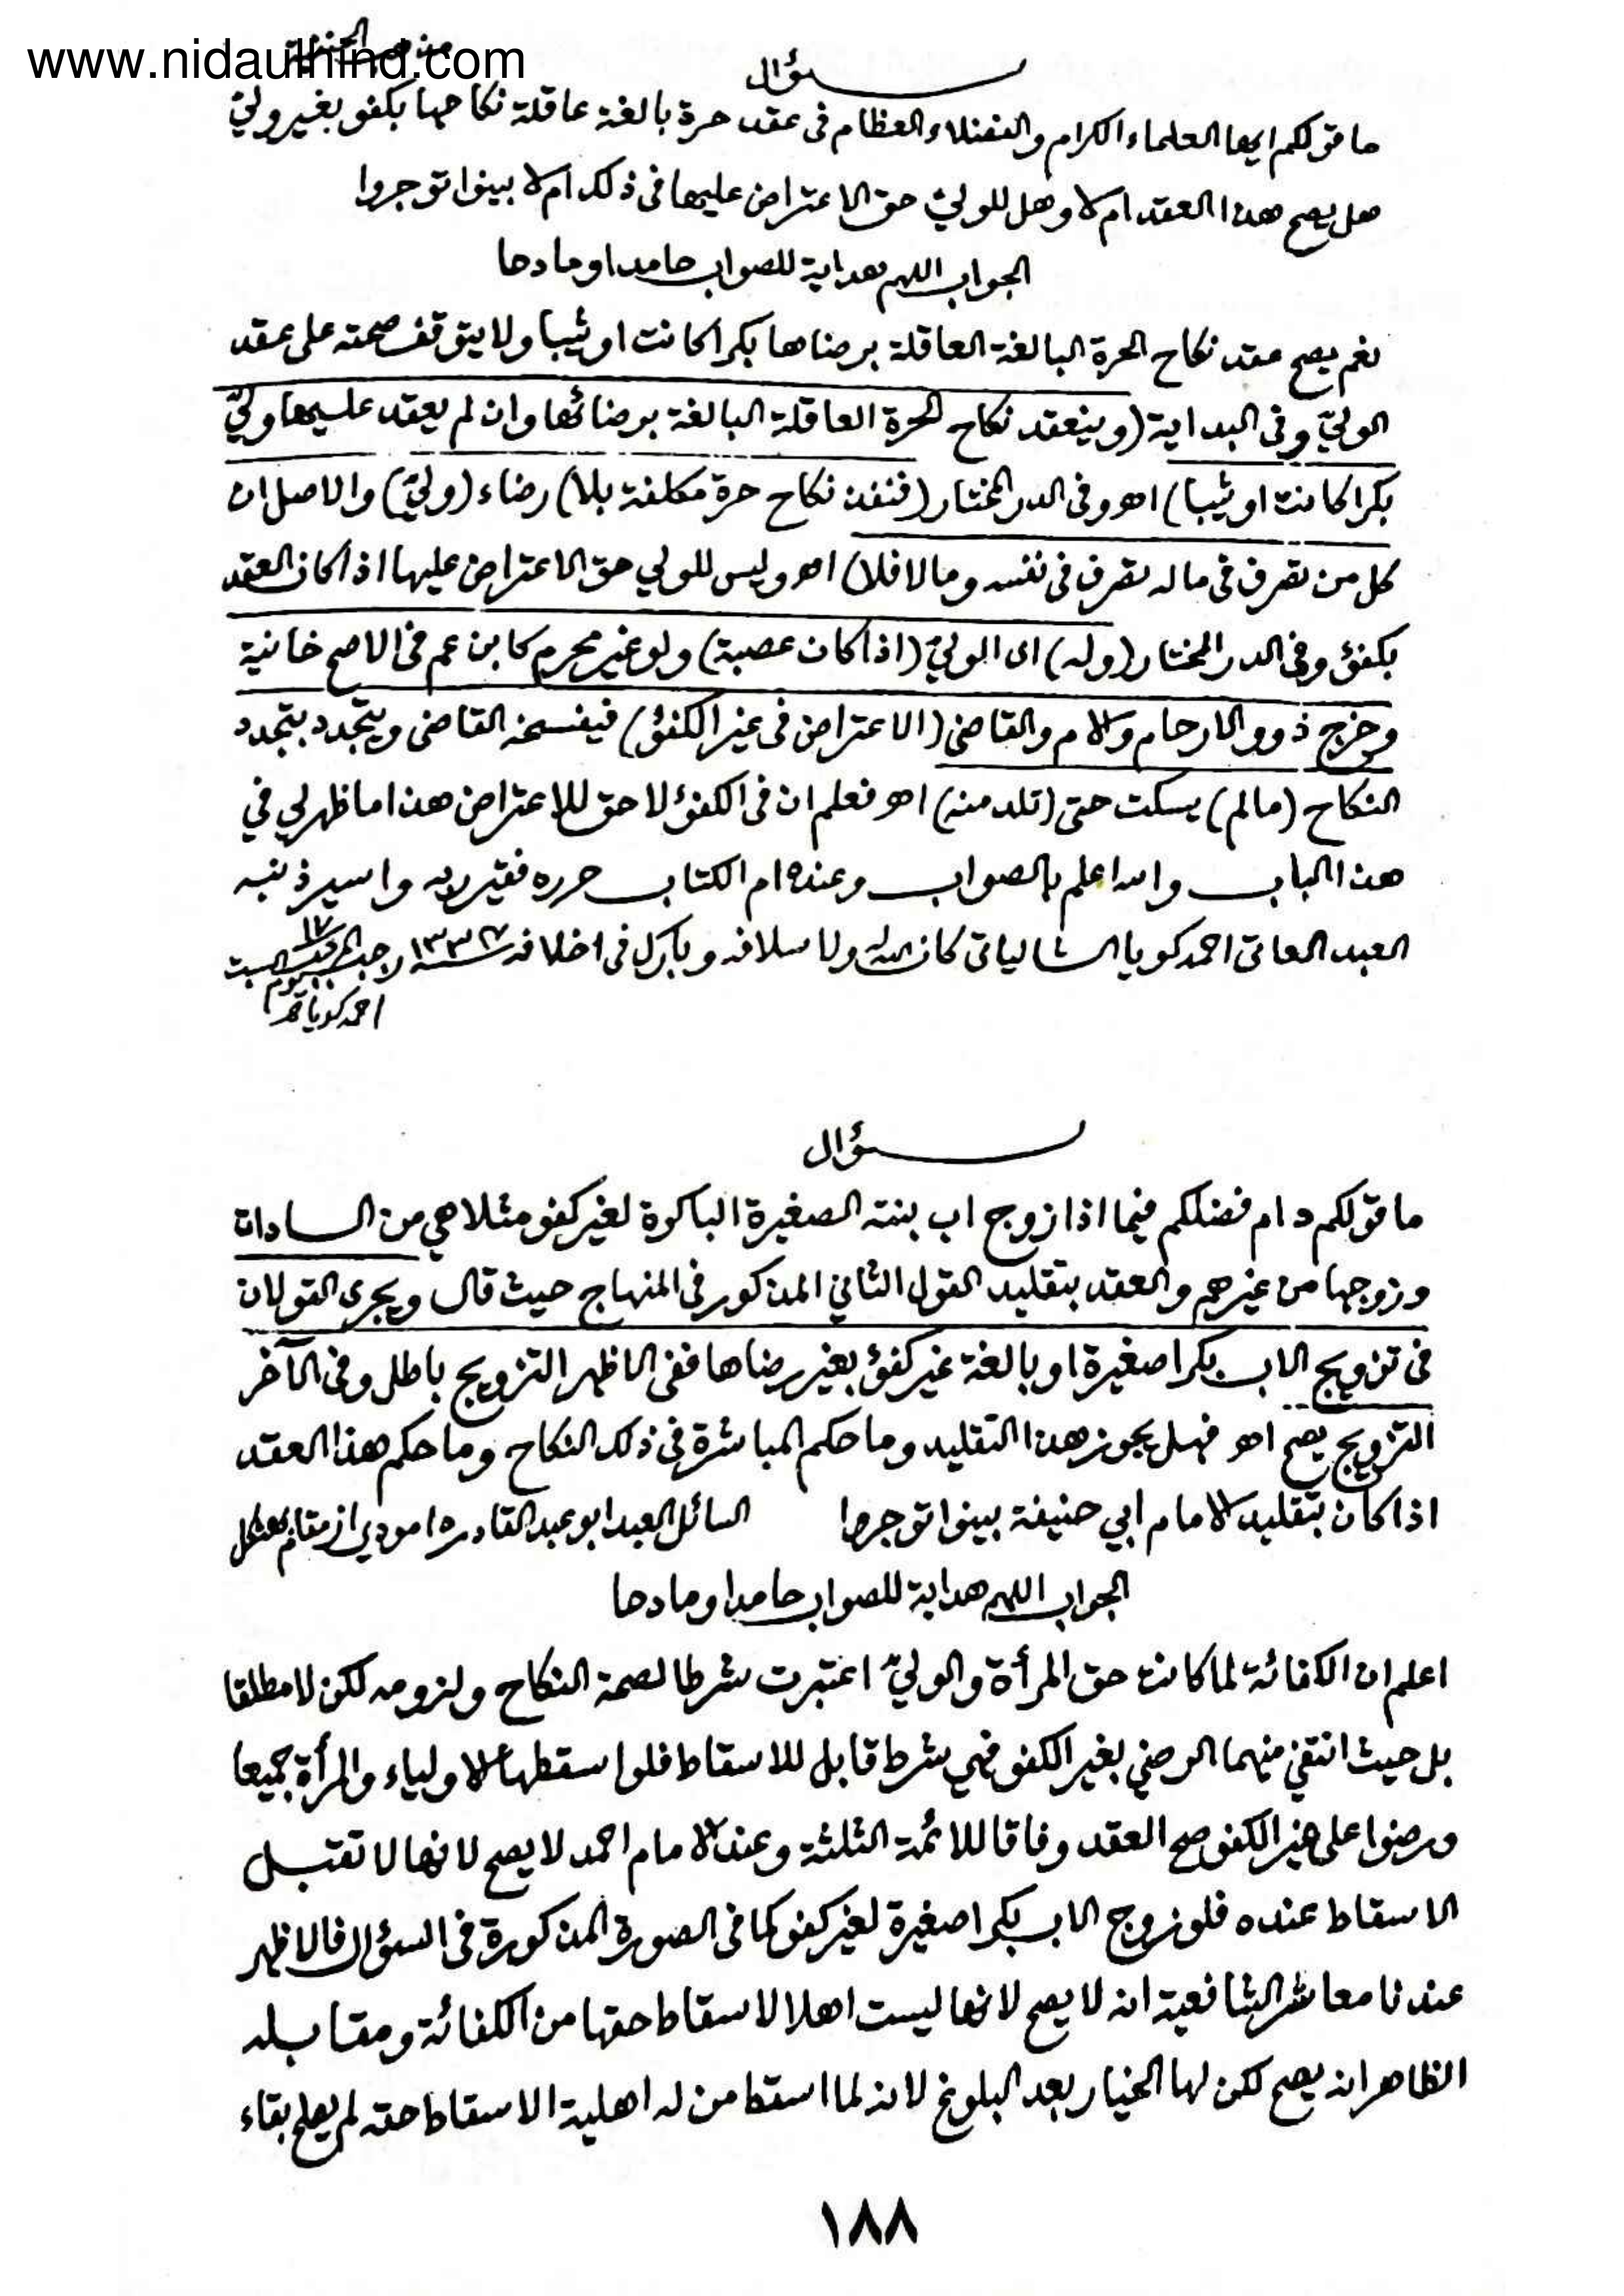 www.nidaulhind.com
سؤال
ما قولكم ايها العلماء الكرام والفضلاء العظام فى عقد حرة بالغة عاقلة نكاحها بكفو بغير ولىّ
هل يصح هذا العقد ام لا وهل للولىّ حق الاعتراض عليها فى ذلك ام لا بينوا توجروا
الجواب اللهم هداية للصواب حامدا ومادحا
نعم يصح عقد نكاح الحرة البالغة العاقلة برضاها بكرا كانت او ثيبا ولا يتوقف صحته على عقد
الولىّ وفى البداية (وينعقد نكاح الحرة العاقلة البالغة برضائها وان لم يعقد عليها ولىّ
بكرا كانت او ثيبا) اهـ وفى الدر المختار (فنفذ نكاح حرة مكلفة بلا) رضاء (ولىّ) والاصل ان
كل من تصرف فى ماله تصرف فى نفسه وما لا فلا) اهـ وليس للولي حق الاعتراض عليها اذا كان العقد
بكفؤ وفى الدر المختار (وله) اى الولىّ (اذا كان عصبة) ولو غير محرم كابن عم فى الاصح خانية
وخرج ذوو الارحام والام والقاضى (الاعتراض فى غير الكفؤ) فيفسخه القاضى ويتجدد بتجدد
النكاح (مالم) يسكت حتى (تلد منه) اهـ فعلم ان فى الكفؤ لا حق للاعتراض هذا ما ظهر لي في
هذا الباب والله اعلم بالصواب وعنده ام الكتاب حرره فقير ربه واسير ذنبه
العبد العاتى احمد كويا الشالياتى كان الله له ولاسلافه وبارك فى اخلافه ١٧ رجب يوم السبت
احمد كويا
سؤال
ما قولكم دام فضلكم فيما اذا زوج اب بنته الصغيرة الباكرة لغير كفو مثلا هي من السادات
وزوجها من غيرهم والعقد بتقليد القول الثاني المذكور فى المنهاج حيث قال ويجرى القولان
فى تزويج الاب بكرا صغيرة او بالغة غير كفؤ بغير رضاها ففى الاظهر التزويج باطل وفى الآخر
التزويج يصح اهـ فهل يجوز هذا التقليد وما حكم المباشرة فى ذلك النكاح وما حكم هذا العقد
اذا كان بتقليد الامام ابي حنيفة بينوا توجروا السائل العبد ابو عبد القادر از مقام
الجواب اللهم هداية للصواب حامدا ومادحا
اعلم ان الكفائة لما كانت حق المرأة والولىّ اعتبرت شرطا لصحة النكاح ولزومه لكن لا مطلقا
بل حيث انتفى منهما الرضي بغير الكفو فهي شرط قابل للاسقاط فلو اسقطها الاولياء والمرأة جميعا
ورضوا على غير الكفو صح العقد وفاقا للائمة الثلثة وعند الامام احمد لا يصح لانها لا تقبل
الاسقاط عنده فلو زوج الاب بكرا صغيرة لغير كفو كما فى الصورة المذكورة فى السؤال فالاظهر
عندنا معاشر الشافعية انه لا يصح لانها ليست اهلا لاسقاط حقها من الكفائة ومقابله
الظاهر انه يصح لكن لها الخيار بعد البلوغ لانه لما اسقط من له اهلية الاسقاط حقه لم يصلح بقاء
١٨٨